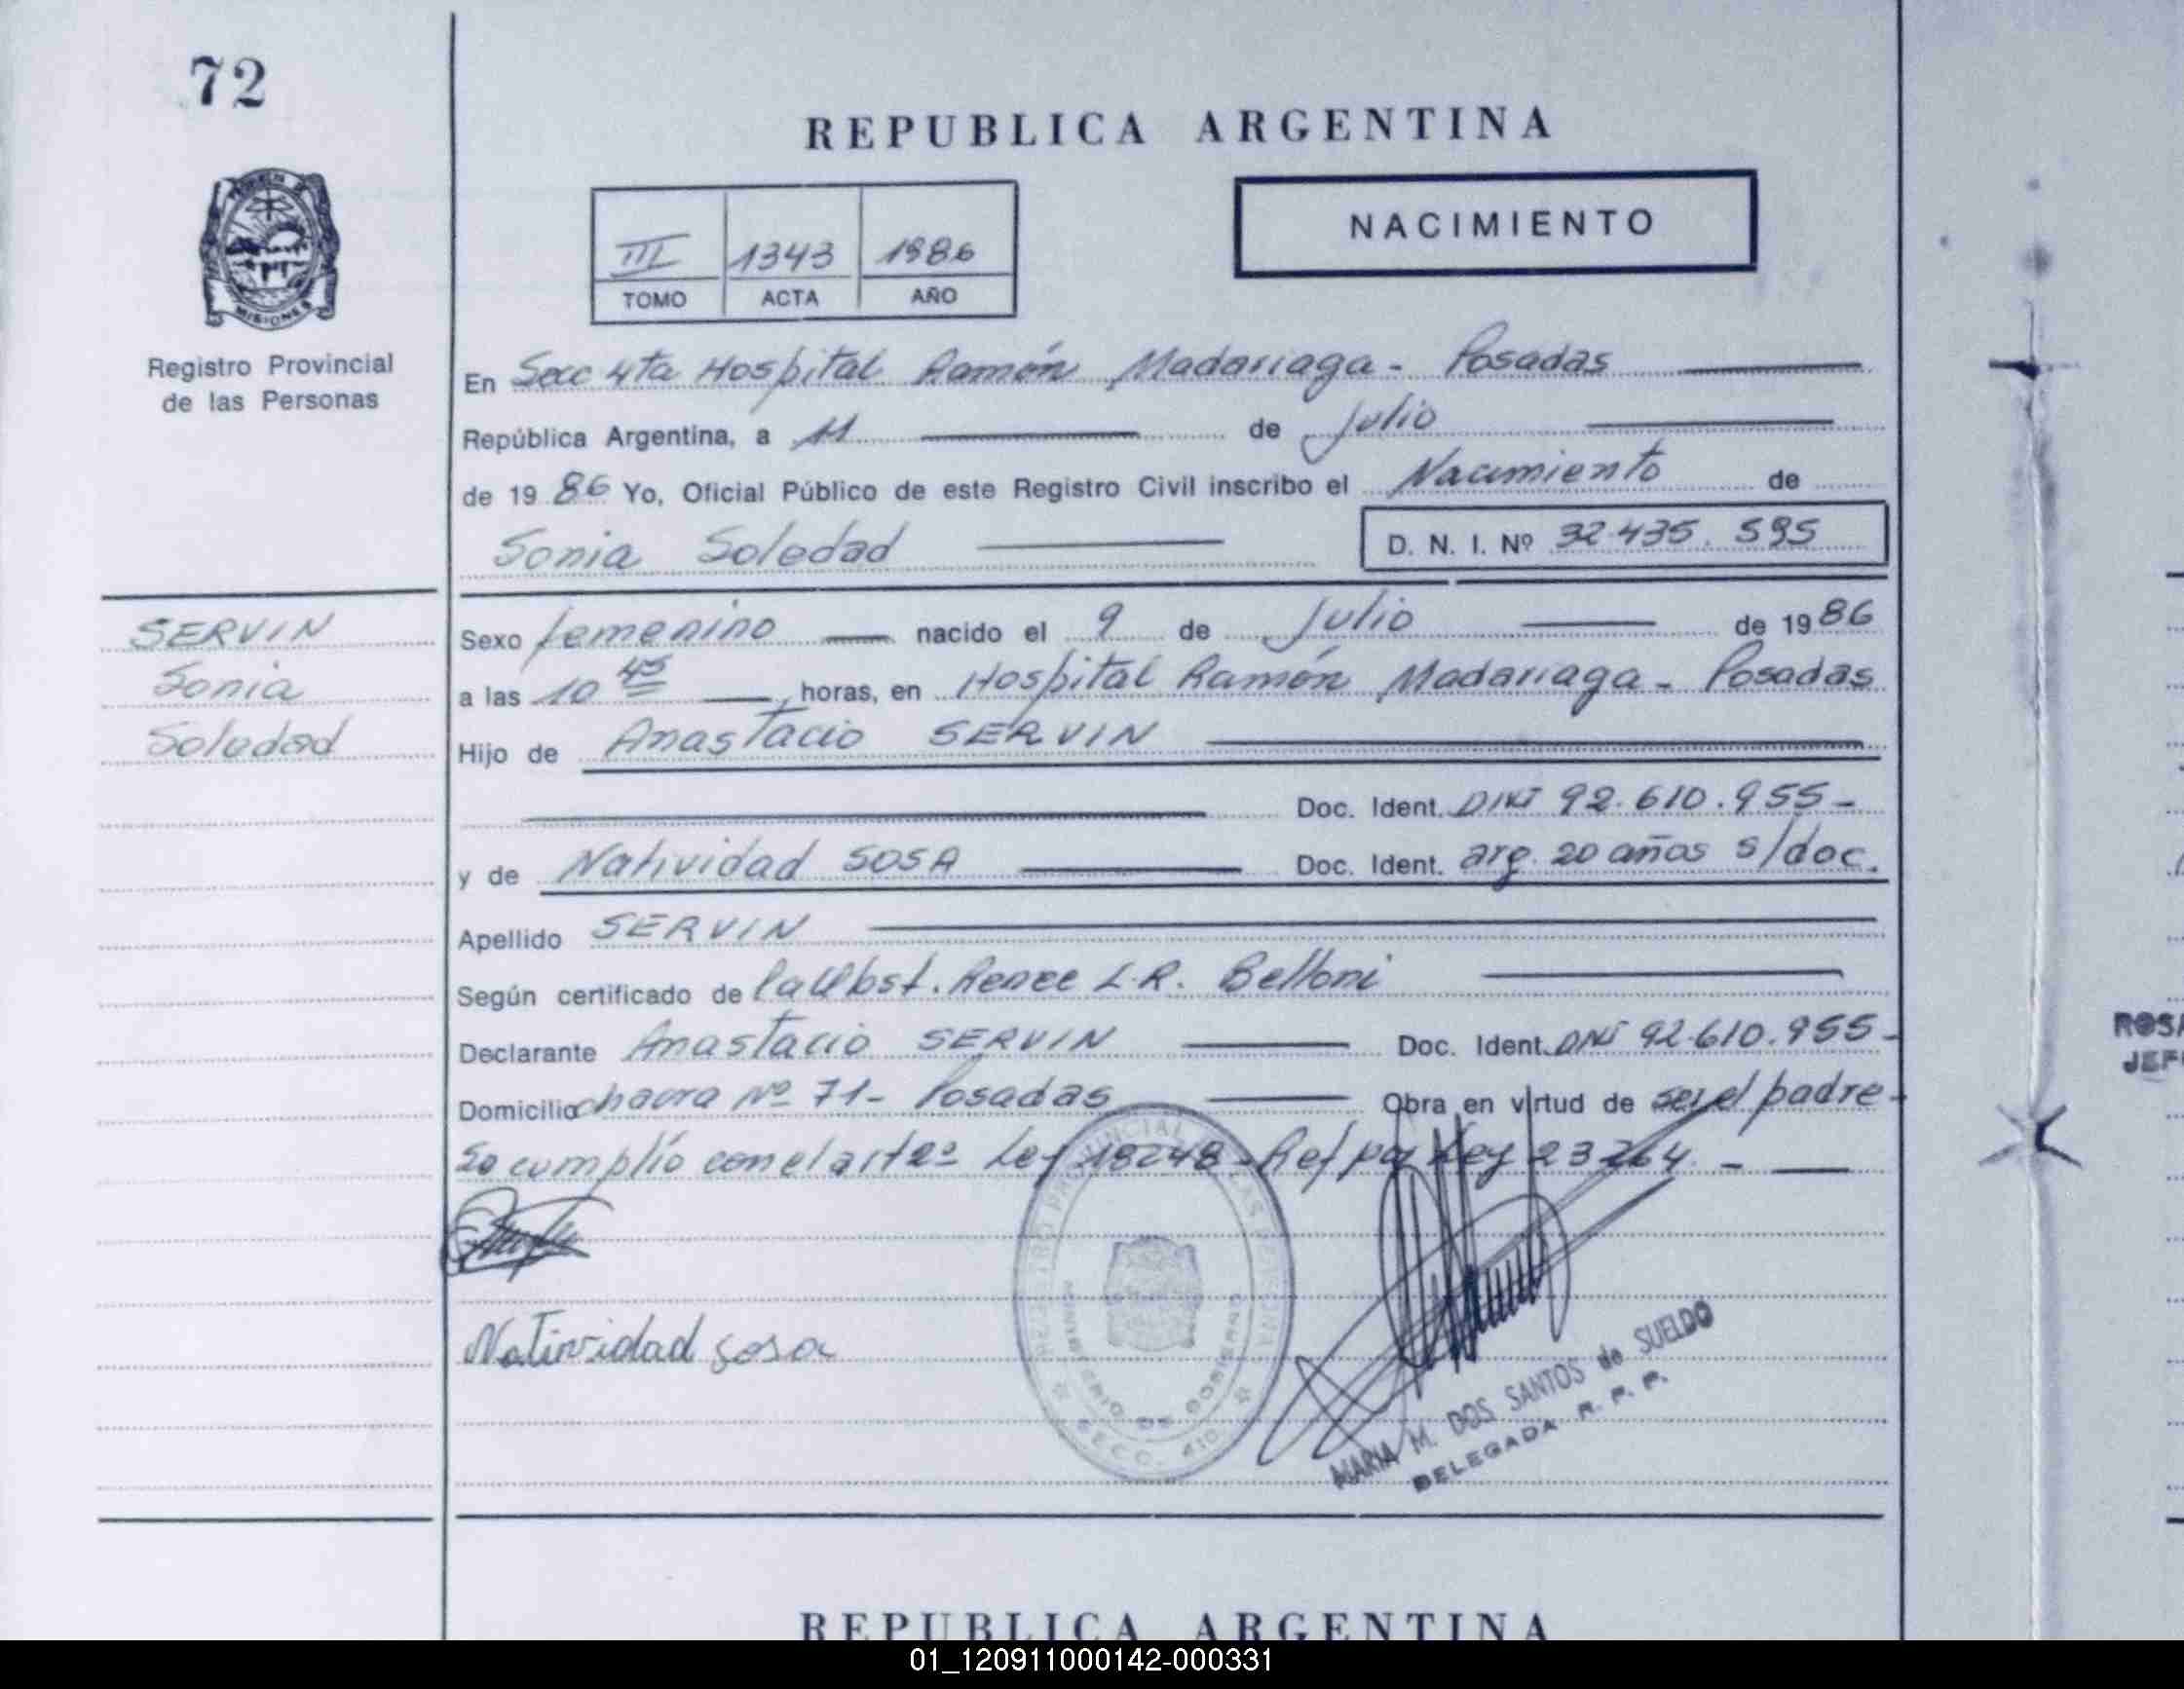 72
REPUBLICA ARGENTINA
NACIMIENTO
III 1343 1986
TOMO ACTA AÑO
MISIONES
Registro Provincial
de las Personas
En Secc 4ta Hospital Ramón Madariaga - Posadas
República Argentina, a 11 de Julio
de 1986 Yo, Oficial Público de este Registro Civil inscribo el Nacimiento de
Sonia Soledad D. N. I. Nº 32.435.595
SERVIN
Sonia
Soledad
Sexo femenino nacido el 9 de Julio de 1986
a las 10 45 horas, en Hospital Ramón Madariaga - Posadas
Hijo de Anastacio SERVIN
Doc. Ident. DNI 92.610.955-
y de Natividad SOSA Doc. Ident. arg. 20 años s/doc.
Apellido SERVIN
Según certificado de la Obst. Renee L.R. Belloni
Declarante Anastacio SERVIN Doc. Ident. DNI 92.610.955-
Domicilio chacra Nº 71- Posadas Obra en virtud de ser el padre-
Se cumplió con el art 2º Ley 18248 - Ref por Ley 23264. -
Natividad sosa
REGISTRO PROVINCIAL DE LAS PERSONAS
MINISTERIO DE GOBIERNO
SECC. 4ta.
MARIA M. DOS SANTOS de SUELDO
DELEGADA R. P. P.
ROSA
JEF
REPUBLICA ARGENTINA
01_120911000142-000331